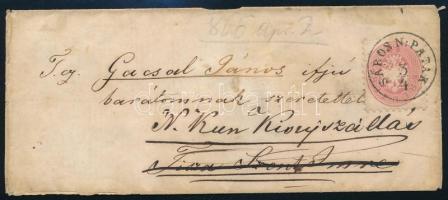 865 Apr. 2
T. cz. Gacsal János ifjú
barátomnak szeretettel
N. Kun Kisujszállás
Tisza Szent Imre
SÁROS N: PATAK
3/4